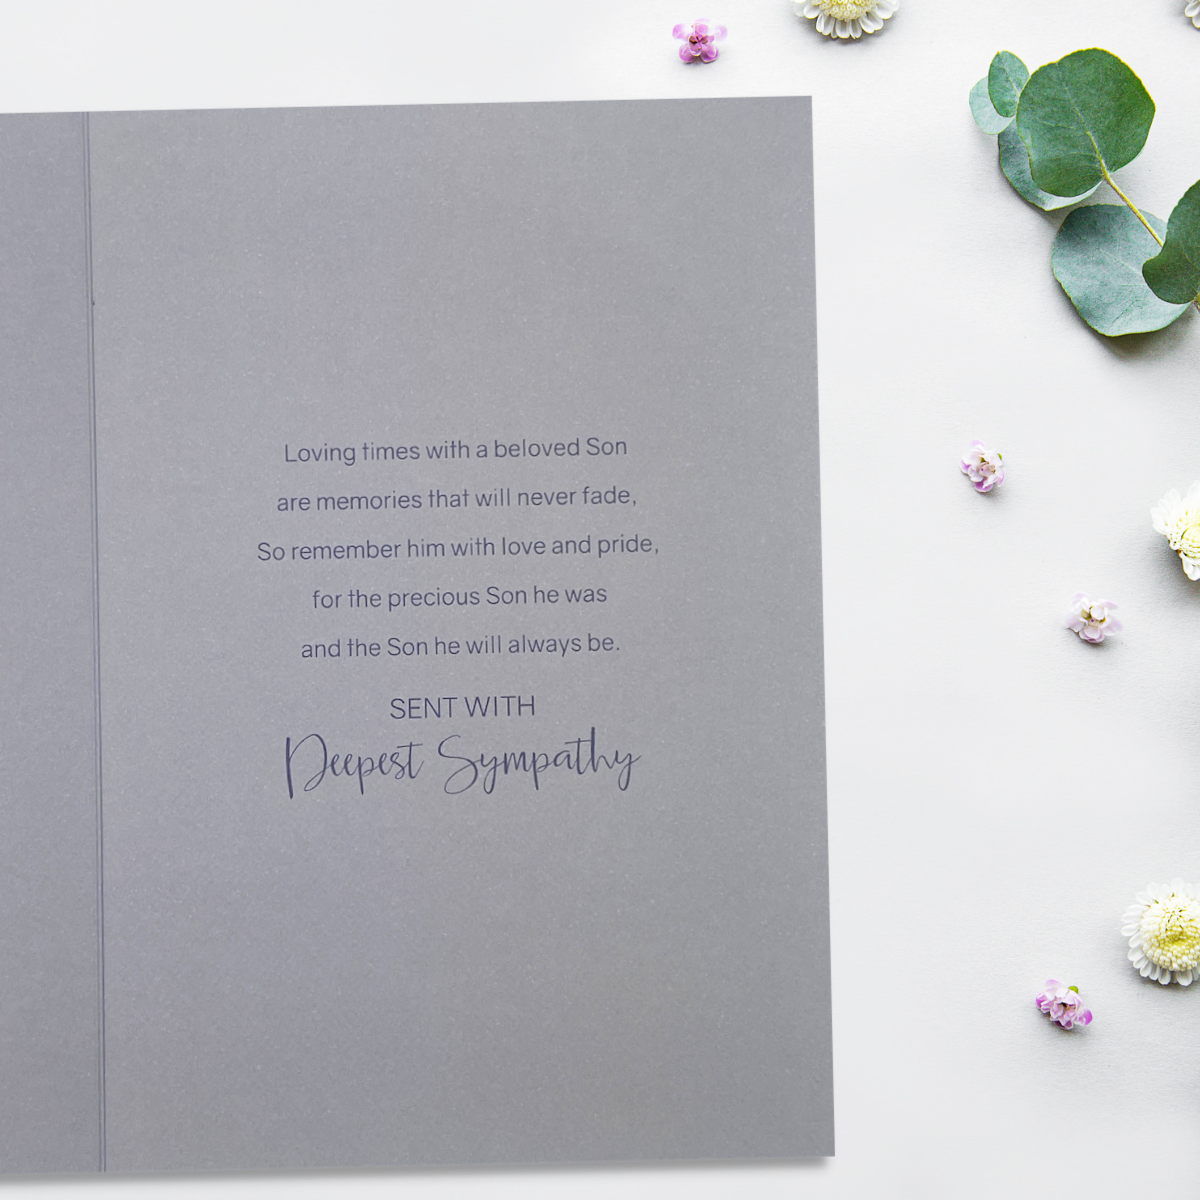 Loving times with a beloved Son
are memories that will never fade,
So remember him with love and pride,
for the precious Son he was
and the Son he will always be.
SENT WITH
Deepest Sympathy